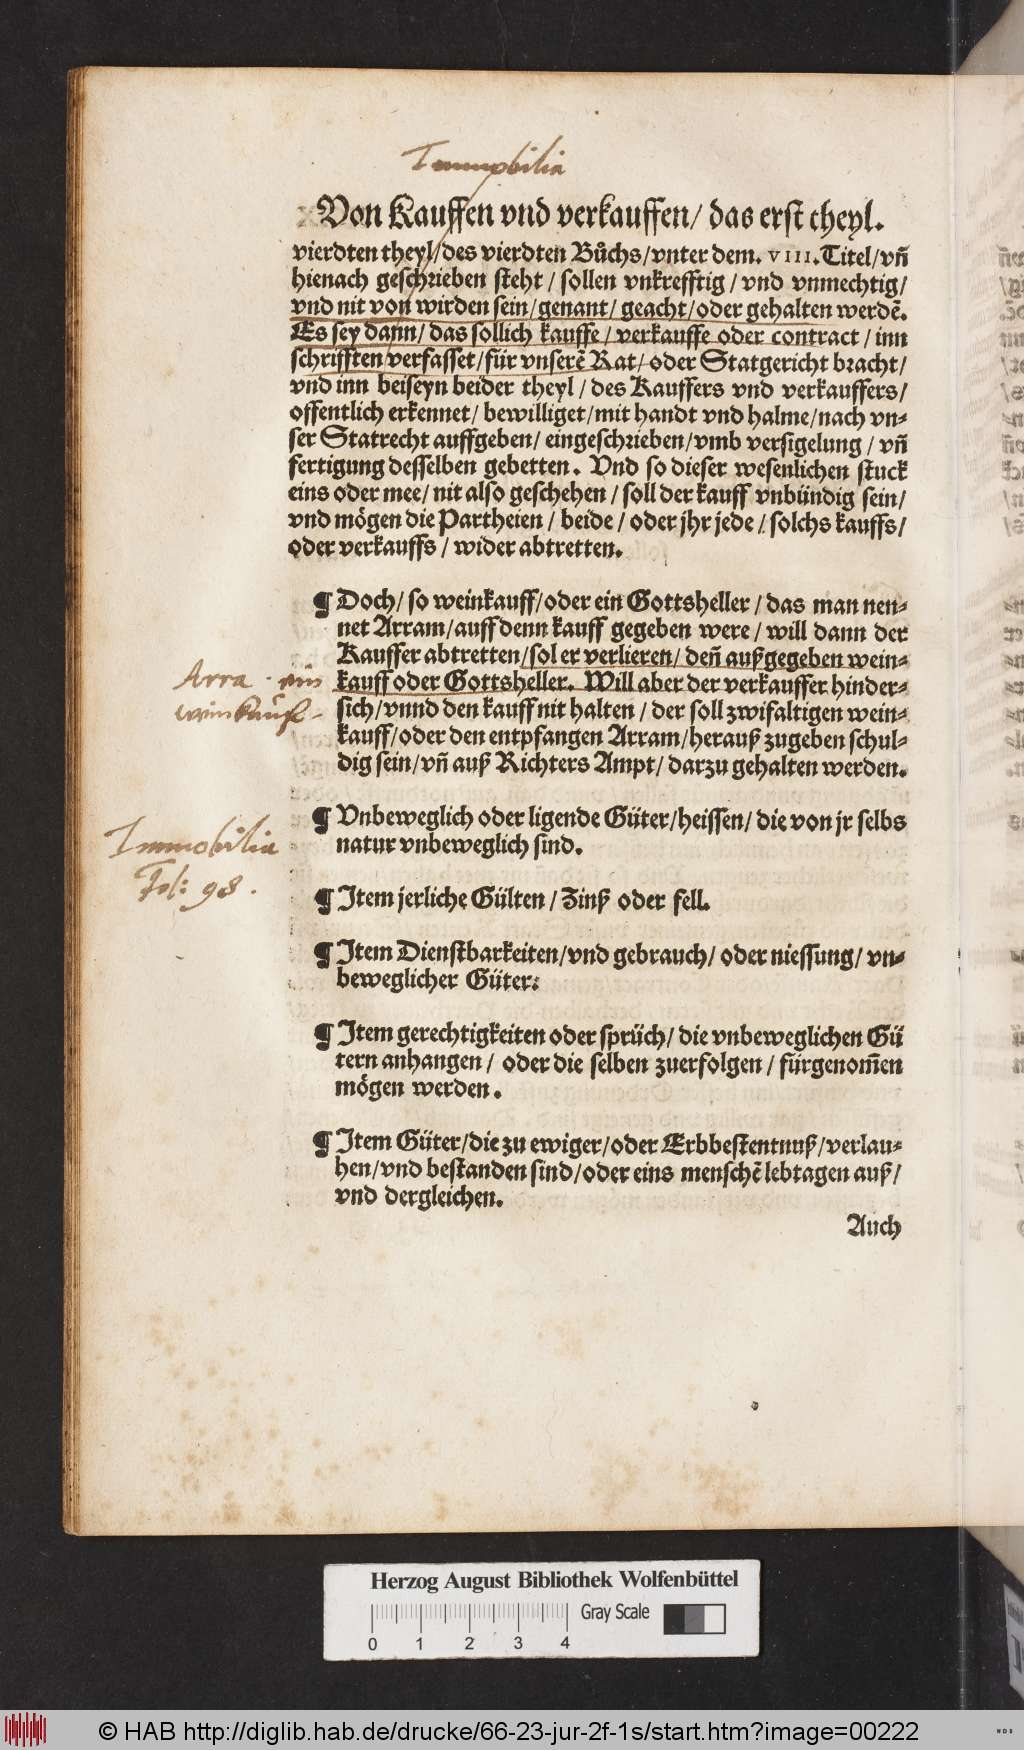 Immobilia
Von Kauffen vnd verkauffen/ das erst theyl.
vierdten theyl/des vierdten Bůchs/vnter dem. VIII. Titel/vn̄
hienach geschrieben steht / sollen vnkrefftig / vnd vnmechtig/
vnd nit von wirden sein/genant/ geacht/oder gehalten werdē.
Es sey dann/ das sollich kauffe / verkauffe oder contract / inn
schrifften verfasset/für vnserē Rat/oder Statgericht bracht/
vnd inn beiseyn beider theyl / des Kauffers vnd verkauffers/
offentlich erkennet/ bewilliget/mit handt vnd halme/nach vn⸗
ser Statrecht auffgeben/ eingeschrieben/vmb versigelung / vn̄
fertigung desselben gebetten. Vnd so dieser wesenlichen stuck
eins oder mee/ nit also geschehen / soll der kauff vnbündig sein/
vnd mögen die Partheien / beide / oder jhr jede / solchs kauffs/
oder verkauffs / wider abtretten.
¶ Doch/ so weinkauff/oder ein Gottsheller / das man nen⸗
net Arram/auff denn kauff gegeben were / will dann der
Kauffer abtretten/sol er verlieren/ den̄ außgegeben wein⸗
Arra
weinkauff
kauff oder Gottsheller. Will aber der verkauffer hinder⸗
sich/vnnd den kauff nit halten / der soll zwifaltigen wein⸗
kauff/oder den entpfangen Arram/herauß zugeben schul⸗
dig sein/vn̄ auß Richters Ampt/ darzu gehalten werden.
¶ Vnbeweglich oder ligende Güter/heissen/ die von jr selbs
natur vnbeweglich sind.
Immobilia
Fol: 98.
¶ Item jerliche Gülten / Zinß oder fell.
¶ Item Dienstbarkeiten/vnd gebrauch/ oder niessung/ vn⸗
beweglicher Güter:
¶ Item gerechtigkeiten oder sprüch/ die vnbeweglichen Gü
tern anhangen / oder die selben zuerfolgen / fürgenom̄en
mögen werden.
¶ Item Güter/die zu ewiger/oder Erbbestentnuß/verlau⸗
hen/vnd bestanden sind/oder eins menschē lebtagen auß/
vnd dergleichen.
Auch
Herzog August Bibliothek Wolfenbüttel
Gray Scale
0 1 2 3 4
© HAB http://diglib.hab.de/drucke/66-23-jur-2f-1s/start.htm?image=00222